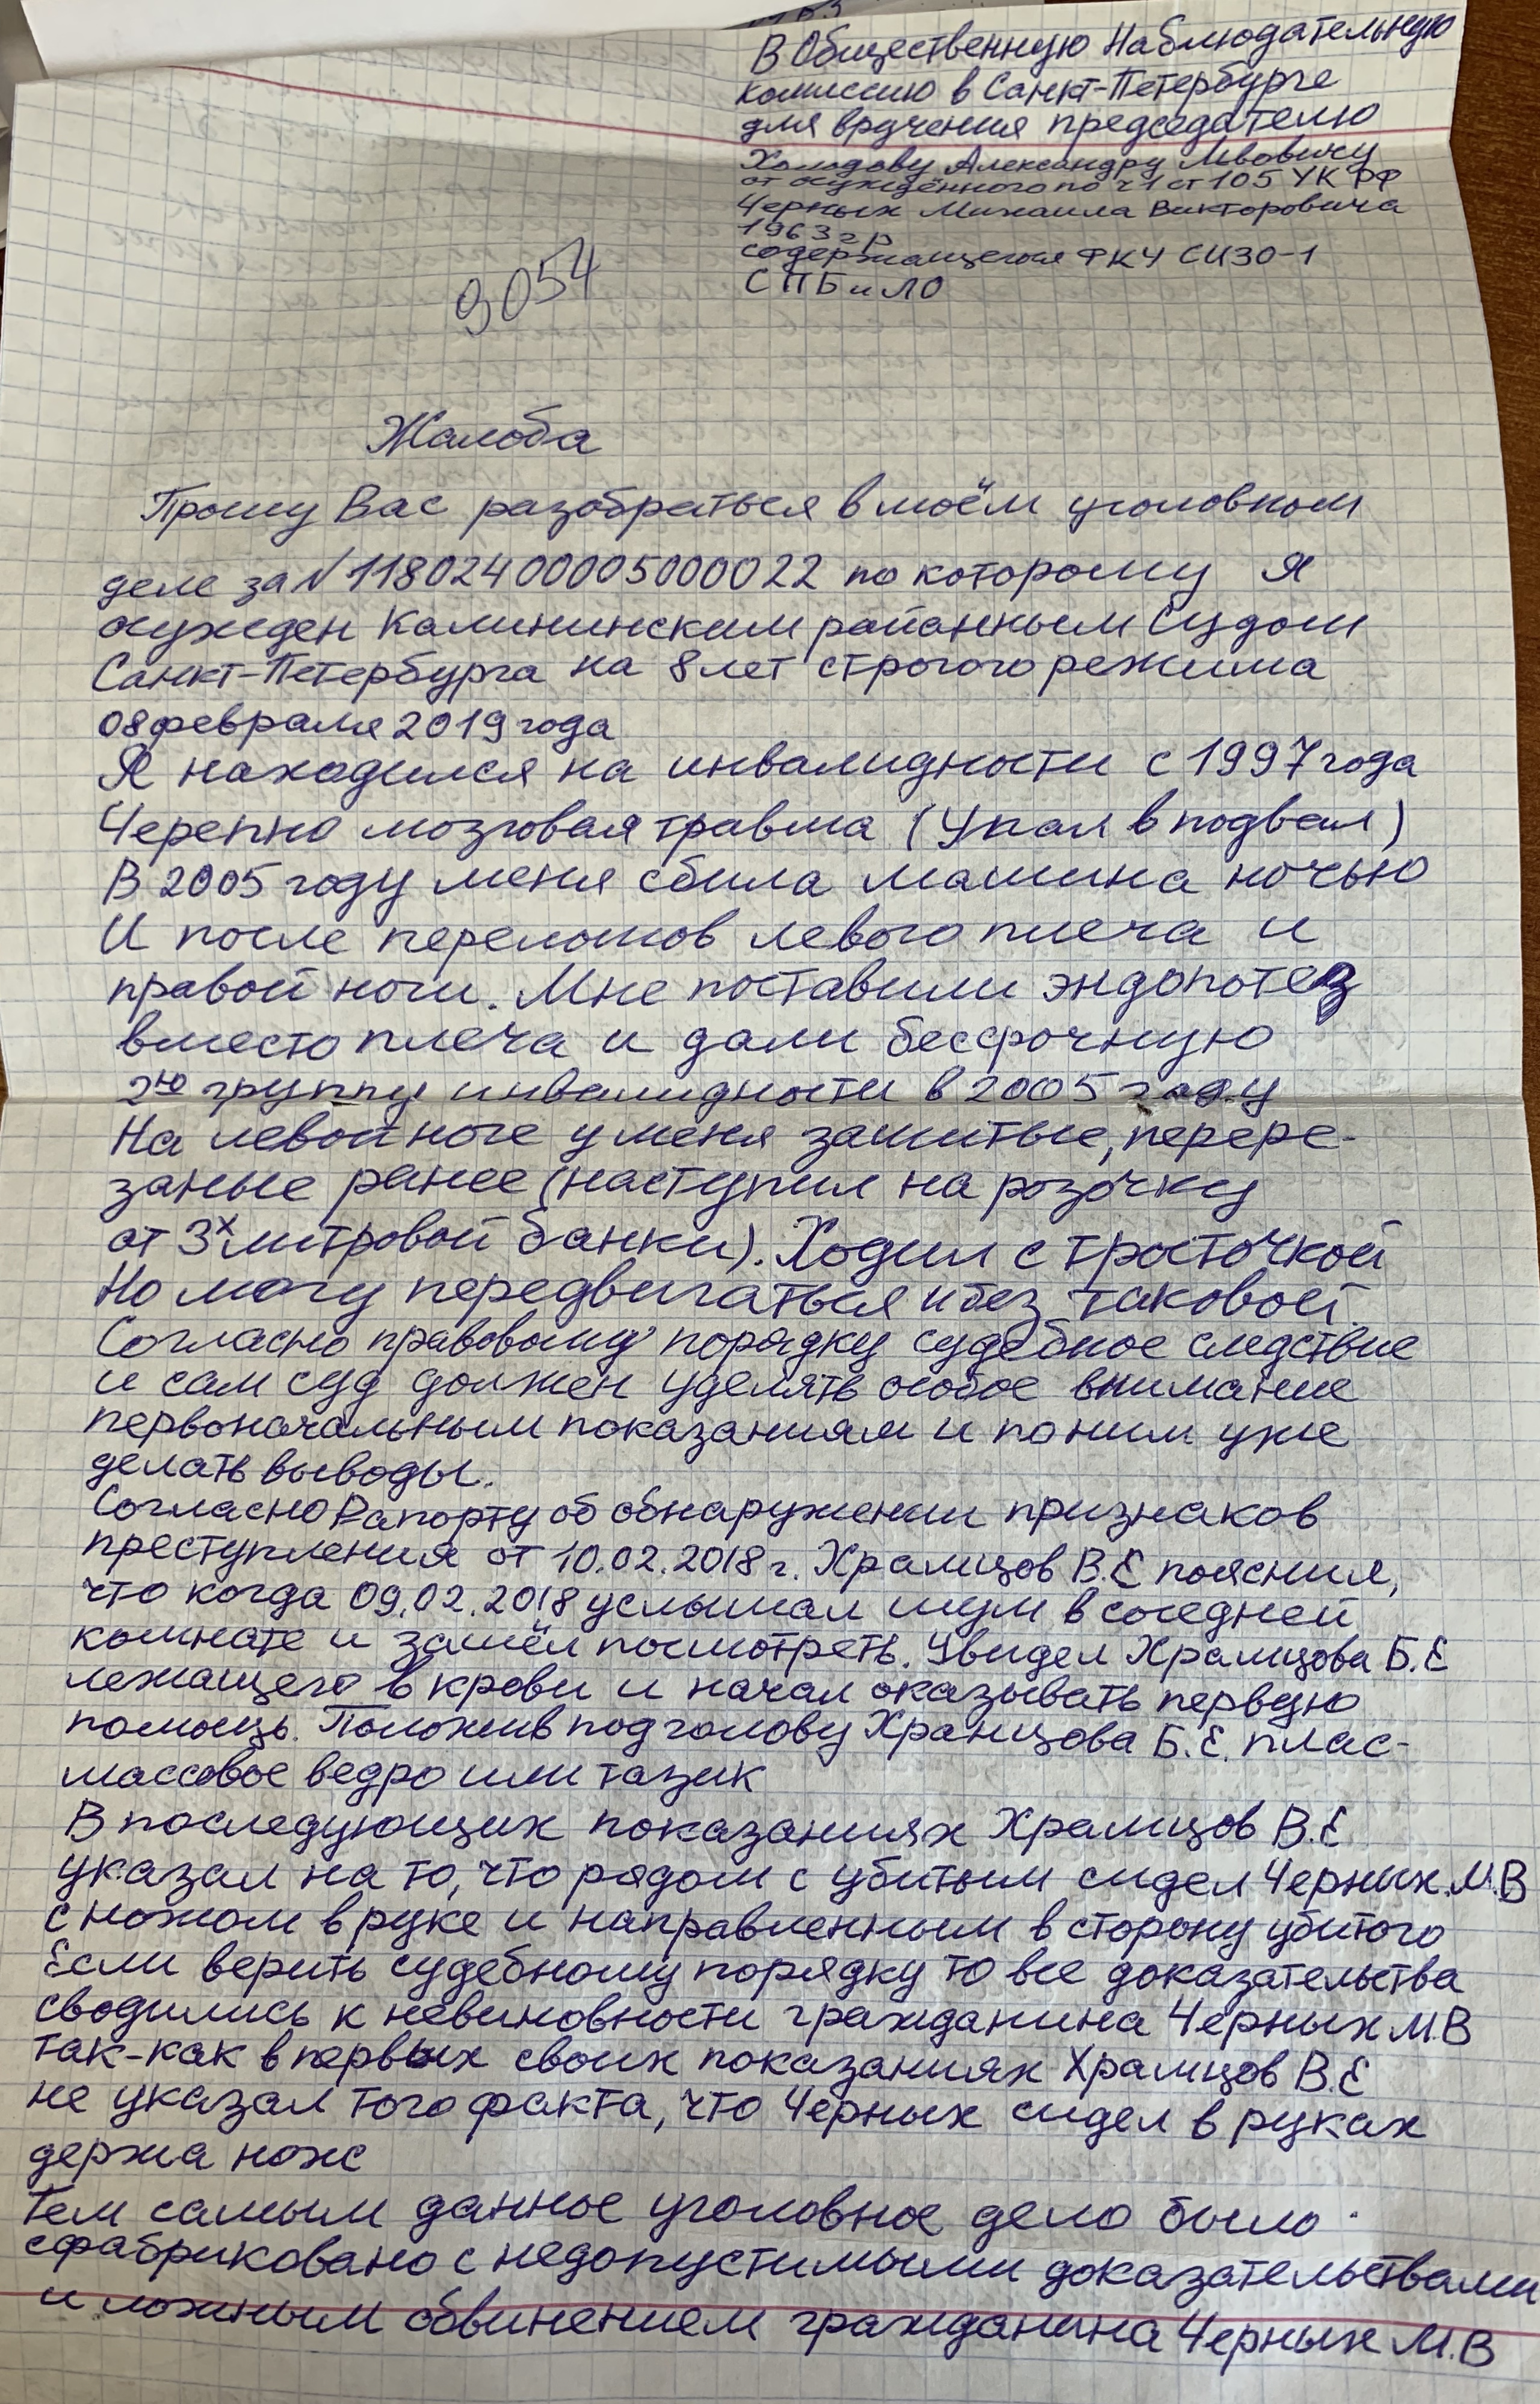 В Общественную Наблюдательную
комиссию в Санкт-Петербурге
для вручения председателю
Холодову Александру Львовичу
от осуждённого по ч1 ст 105 УК РФ
Черных Михаила Викторовича
1963 г р
содержащегося ФКУ СИЗО-1
СПБ и ЛО
9054
Жалоба
Прошу Вас разобраться в моём уголовном
деле за N 11802400005000022 по которому я
осужден Калининским районным Судом
Санкт-Петербурга на 8 лет строгого режима
08 февраля 2019 года
Я находился на инвалидности с 1997 года
Черепно мозговая травма (Упал в подвал)
В 2005 году меня сбила машина ночью
И после переломов левого плеча и
правой ноги. Мне поставили эндопотез
вместо плеча и дали бессрочную
2ю группу инвалидности в 2005 году
На левой ноге у меня зашитые, перере-
заные ранее (наступил на розочку
от 3х литровой банки). Ходил с тросточкой
Но могу передвигаться и без таковой
Согласно правовому порядку судебное следствие
и сам суд должен уделять особое внимание
первоначальным показаниям и по ним уже
делать выводы.
Согласно Рапорту об обнаружении признаков
преступления от 10.02.2018 г. Храмцов В.Е пояснил,
что когда 09.02.2018 услышал шум в соседней
комнате и зашёл посмотреть. Увидел Храмцова Б.Е
лежащего в крови и начал оказывать первую
помощь. Положив под голову Храмцова Б.Е. плас-
массовое ведро или тазик
В последующих показаниях Храмцов В.Е
указал на то, что рядом с убитым сидел Черных.М.В
с ножом в руке и направленным в сторону убитого
Если верить судебному порядку то все доказательства
сводились к невиновности гражданина Черных М.В
так-как в первых своих показаниях Храмцов В.Е
не указал того факта, что Черных сидел в руках
держа нож
Тем самым данное уголовное дело было
сфабриковано с недопустимыми доказательствами
и ложным обвинением гражданина Черных М.В